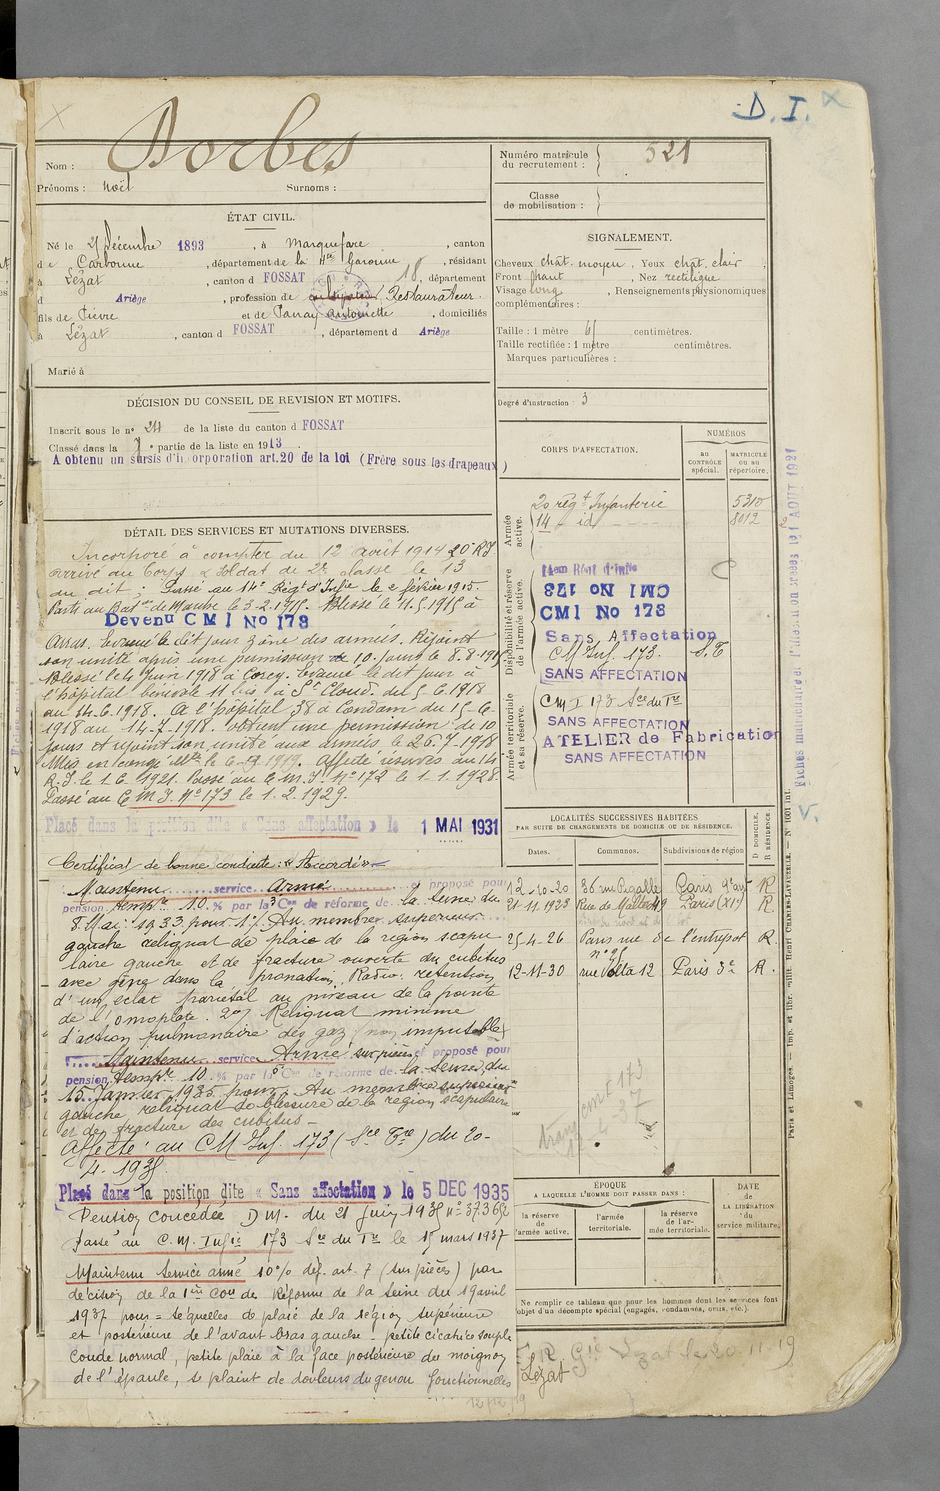 D. I.
Nom : Dorbes
Prénoms : Noël Surnoms :
Numéro matricule du recrutement : 521
Classe de mobilisation :
ÉTAT CIVIL.
Né le Décembre 1893, à , canton
de Carbonne, département de la Hte Garonne, résidant
à Lézat, canton d FOSSAT, département
d Ariège, profession de Restaurateur.
fils de Pierre et de Antoinette, domiciliés
à Lézat, canton d FOSSAT, département d Ariège
Marié à
SIGNALEMENT.
Cheveux chât. moyen, Yeux chât. clair,
Front haut, Nez rectiligne
Visage long, Renseignements physionomiques
complémentaires :
Taille : 1 mètre 61 centimètres.
Taille rectifiée : 1 mètre centimètres.
Marques particulières :
Degré d'instruction : 3
DÉCISION DU CONSEIL DE REVISION ET MOTIFS.
Inscrit sous le n° 24 de la liste du canton d FOSSAT
Classé dans la partie de la liste en 1913
A obtenu un sursis d'incorporation art.20 de la loi (Frère sous les drapeaux)
DÉTAIL DES SERVICES ET MUTATIONS DIVERSES.
Incorporé à compter du 12 août 1914 20e RI
arrivé au Corps & Soldat de 2e classe le 13
du dit. Passé au 14e Régt d'Infie le 2 février 1915.
Parti au Bat de Marche le 3-2-1915. Blessé le 11-5-1915 à
Devenu CMI No 173
Arras. Evacué le dit jour zône des armées. Rejoint
son unité après une permission de 10 jours le 8-8-1915
Blessé le 4 Juin 1918 à Corcy. Evacué le dit jour à
l'hôpital bénévole 11 bis à St Cloud. du 5-6-1918
au 14-6-1918. A l'hôpital 38 à Condom du 15-6-
1918 au 14-7-1918. obtient une permission de 10
jours et rejoint son unité aux armées le 26-7-1918
Mis en congé le 1919. Affecté réserves au 14
R.I. le 1.6.1921. Passé au C.M.I. N° 172 le 1.1.1928
Passé au C.M.I. N° 173 le 1.2.1929.
Placé dans la position dite « Sans affectation » le 1 MAI 1931
Certificat de bonne conduite : "Accordé"
Maintenu service Armé et proposé pour
pension temp. 10 % par la 3e Con de réforme de la Seine du
8 Mai 1933 pour 1°/ Au membre supérieur
gauche reliquat de plaie de la région scapu
laire gauche et de fracture ouverte du cubitus
avec gêne dans la pronation. Radio: rétention
d'un éclat pariétal au niveau de la pointe
de l'omoplate. 2°/ Reliquat minime
d'action pulmonaire des gaz (non imputable)
Maintenu service Armé sur pièces et proposé pour
pension temp. 10 % par la Con de réforme de la Seine du
15 Janvier 1935 pour : Au membre supérieur
gauche, reliquat de blessure de la région scapulaire
et de fracture des cubitus -
Affecté au CM Inf. 173 (Sce Tre) du 20-
4-1935
Placé dans la position dite « Sans affectation » le 5 DEC 1935
Pension concédée D M. du 21 juin 1935 n°
Passé au C.M. Infie 173 Sce du Tre le 15 mars 1937
Maintenu Service armé 10% déf. art. 7 (sur pièces) par
décision de la 1ère Con de Réforme de la Seine du 19 avril
1937 pour = séquelles de plaie de la région supérieure
et postérieure de l'avant bras gauche - petite cicatrice souple
Coude normal, petite plaie à la face postérieure du moignon
de l'épaule, se plaint de douleurs du genou fonctionnelles
CORPS D'AFFECTATION.
NUMÉROS
au CONTRÔLE spécial.
MATRICULE ou au répertoire.
Armée active.
20 régt Infanterie 5310
14 - id - 8012
Disponibilité et réserve de l'armée active.
14em Régt d'Infie
CMI No 173
CMI No 173
Sans Affectation
CM Inf. 173. S.T
SANS AFFECTATION
Armée territoriale et sa réserve.
CM I 173 Sce du Tre
SANS AFFECTATION
ATELIER de Fabrication
SANS AFFECTATION
LOCALITÉS SUCCESSIVES HABITÉES
PAR SUITE DE CHANGEMENTS DE DOMICILE OU DE RÉSIDENCE.
Dates. Communes. Subdivisions de région. D DOMICILE, R RÉSIDENCE
12-10-20 36 rue Pigalle Paris 9e arrt R
21-11-1923 Rue de Malte 49 Paris (XIe) R
25-4-26 Paris rue de l'entrepot R.
12-11-30 rue Volta 12 Paris 3e R.
ÉPOQUE
A LAQUELLE L'HOMME DOIT PASSER DANS :
la réserve de l'armée active.
l'armée territoriale.
la réserve de l'armée territoriale.
DATE de LA LIBÉRATION du service militaire.
Ne remplir ce tableau que pour les hommes dont les services font
l'objet d'un décompte spécial (engagés, condamnés, omis, etc.).
Lézat le 20.11.19
Lézat
12/12/19
Paris et Limoges. — Imp. et libr. milit. Henri CHARLES-LAVAUZELLE. — N° 1001 int.